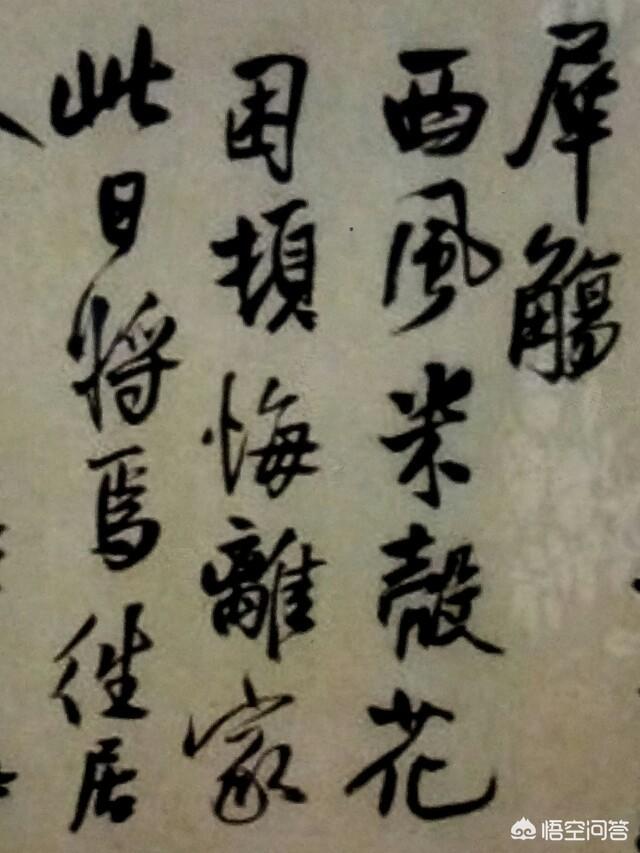 犀觴
西風米殼花
困頓悔離家
此日將焉往居
悟空问答